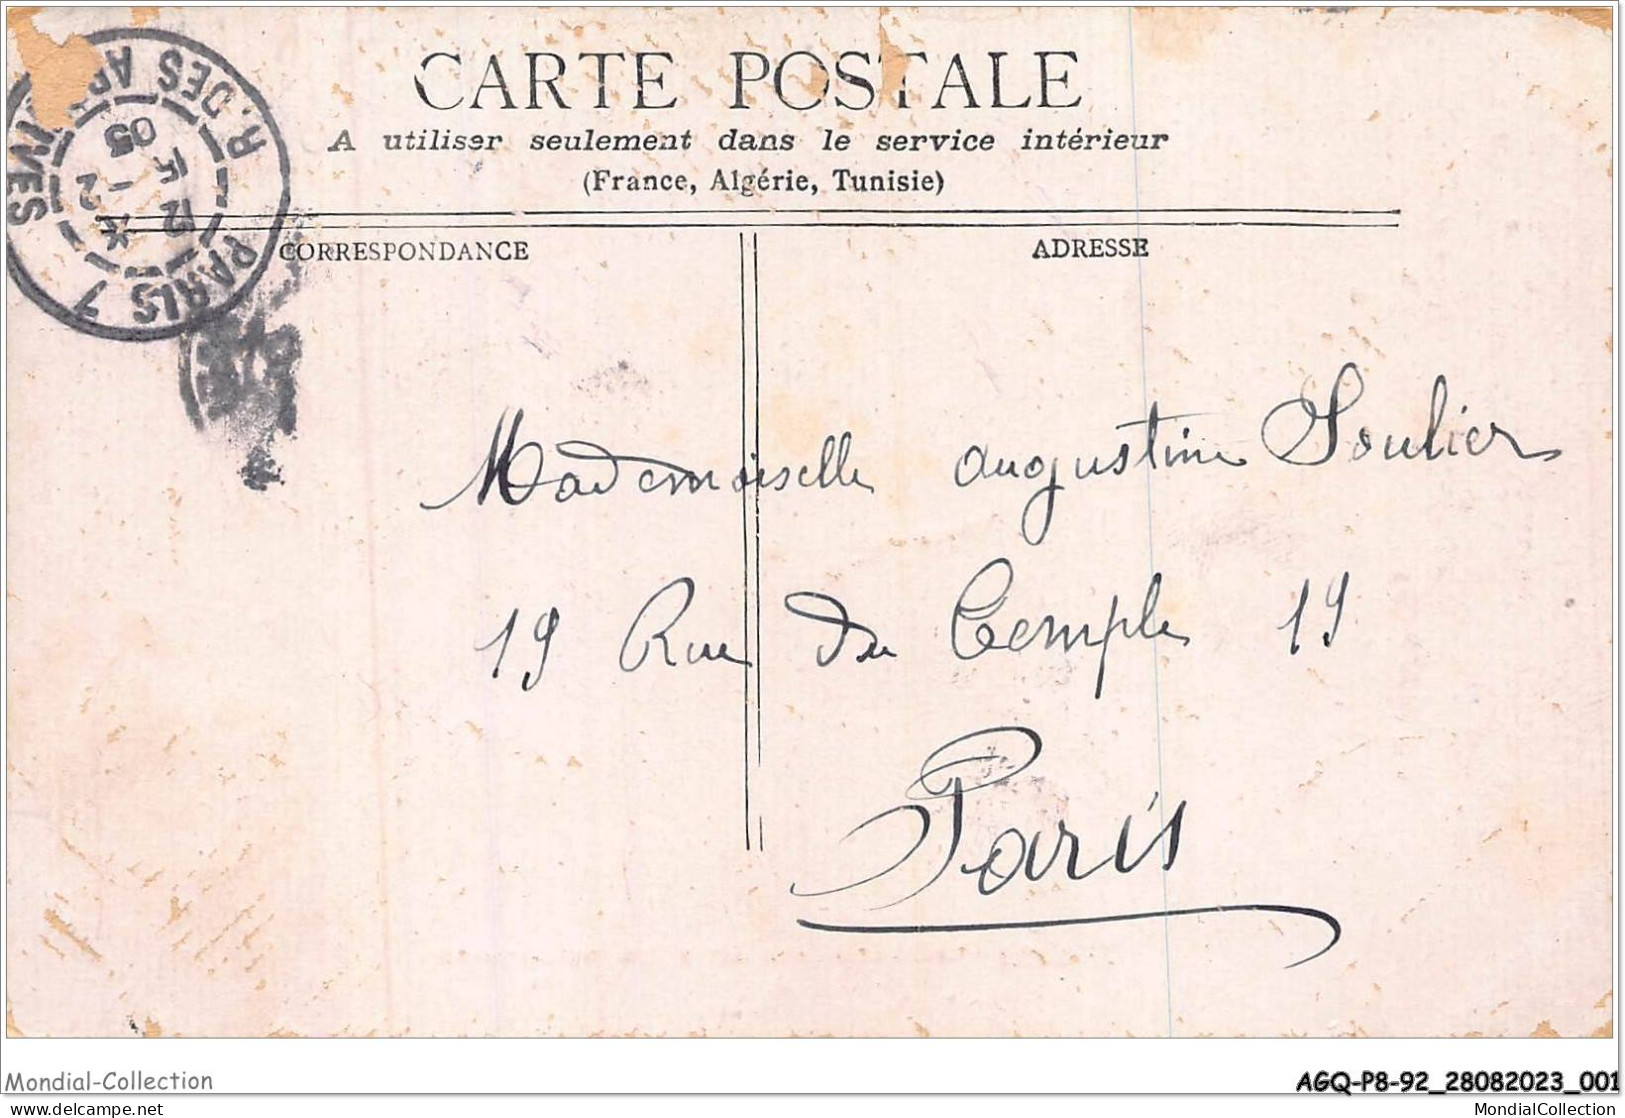 CARTE POSTALE
A utiliser seulement dans le service intérieur
(France, Algérie, Tunisie)
CORRESPONDANCE
ADRESSE
PARIS 7
R. DES
12
05
Mademoiselle augustine Soulier
19 Rue du Temple 19
Paris
Mondial-Collection
AGQ-P8-92_28082023_001
delcampe.net
MondialCollection